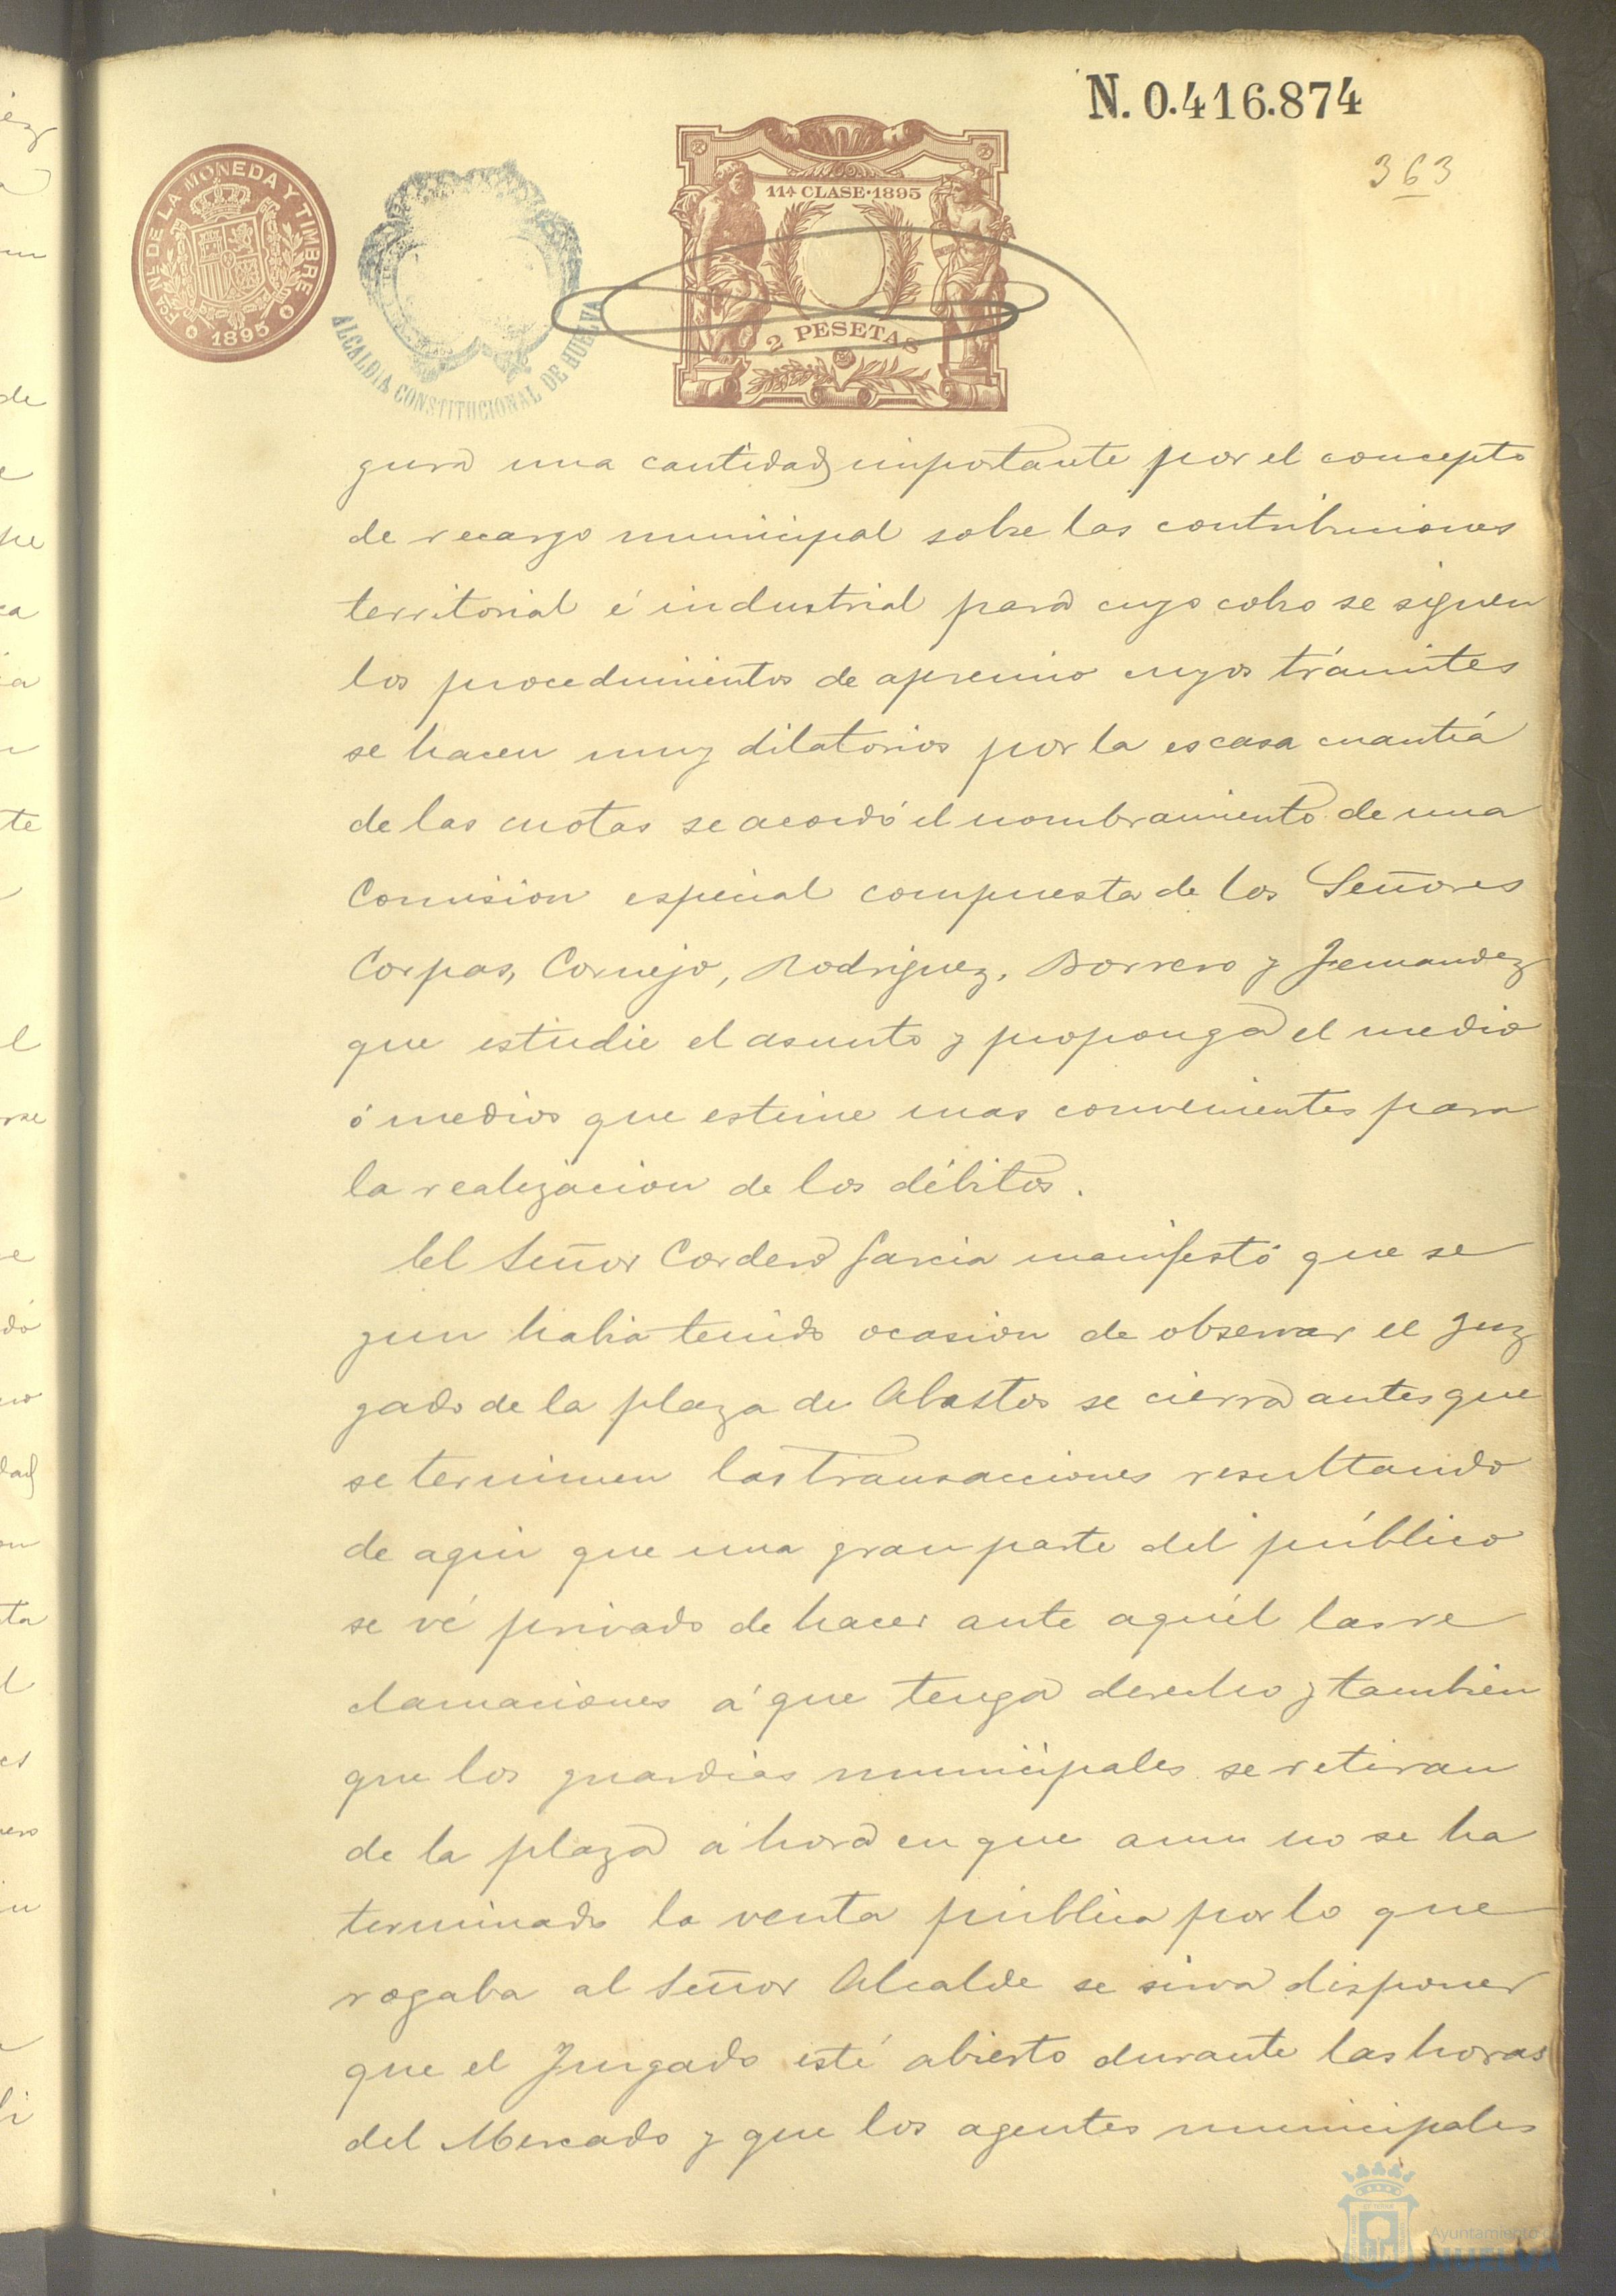 N. 0.416.874
363
FCA NL DE LA MONEDA Y TIMBRE
1895
ALCALDIA CONSTITUCIONAL DE HUELVA
11ª CLASE·1895
2 PESETAS
gura una cantidad importante por el concepto
de recargo municipal sobre las contribuciones
territorial é industrial para cuyo cobro se siguen
los procedimientos de apremio cuyos trámites
se hacen muy dilatorios por la escasa cuantía
de las cuotas se acordó el nombramiento de una
Comision especial compuesta de los Señores
Corpas, Cornejo, Rodriguez, Borrero y Fernandez
que estudie el asunto y proponga el medio
ó medios que estime mas convenientes para
la realizacion de los débitos.
El Señor Cordero Garcia manifestó que se
gun habia tenido ocasion de observar el Juz
gado de la plaza de Abastos se cierra antes que
se terminen las transacciones resultando
de aqui que una gran parte del público
se vé privado de hacer ante aquél las re
clamaciones á que tenga derecho y tambien
que los guardias municipales se retiran
de la plaza á hora en que aun no se ha
terminado la venta pública por lo que
rogaba al Señor Alcalde se sirva disponer
que el Juzgado esté abierto durante las horas
del Mercado y que los agentes municipales
Ayuntamiento
HUELVA